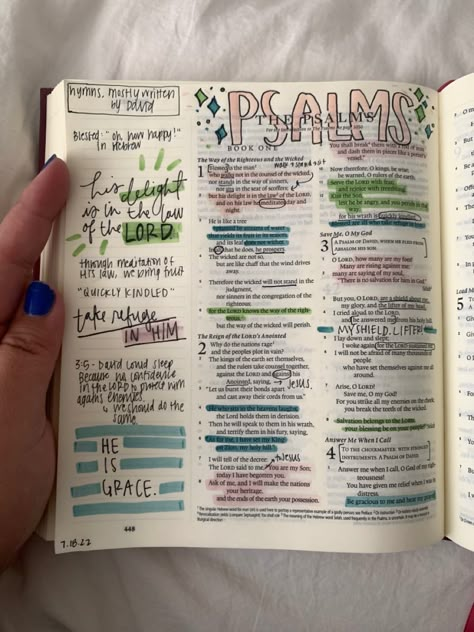 hymns, mostly written
by David
Blessed: "oh how happy!"
in Hebrew
his delight
is in the law
of the LORD
through meditation of
His law, we bring fruit
"QUICKLY KINDLED"
take refuge
IN HIM
3:5 - David could sleep
Because his confidence
in the Lord to protect him
against enemies.
↳ we should do the
same.
HE
IS
GRACE.
448
7.18.22
PSALMS
THE PSALMS
BOOK ONE
The Way of the Righteous and the Wicked
1 Blessed is the man
who walks not in the counsel of the wicked,
nor stands in the way of sinners,
nor sits in the seat of scoffers;
but his delight is in the law of the LORD,
and on his law he meditates day and
night.
He is like a tree
planted by streams of water
that yields its fruit in its season,
and its leaf does not wither.
In all that he does, he prospers.
The wicked are not so,
but are like chaff that the wind drives
away.
Therefore the wicked will not stand in the
judgment,
nor sinners in the congregation of the
righteous;
for the LORD knows the way of the righteous,
but the way of the wicked will perish.
The Reign of the LORD's Anointed
2 Why do the nations rage
and the peoples plot in vain?
The kings of the earth set themselves,
and the rulers take counsel together,
against the LORD and against his
Anointed, saying,
→ Jesus.
"Let us burst their bonds apart
and cast away their cords from us."
He who sits in the heavens laughs;
the Lord holds them in derision.
Then he will speak to them in his wrath,
and terrify them in his fury, saying,
"As for me, I have set my King
on Zion, my holy hill."
Jesus
I will tell of the decree:
The LORD said to me, "You are my Son;
today I have begotten you.
Ask of me, and I will make the nations
your heritage,
and the ends of the earth your possession.
You shall break them with a rod of iron
and dash them in pieces like a potter's
vessel."
Now therefore, O kings, be wise;
be warned, O rulers of the earth.
Serve the LORD with fear,
and rejoice with trembling.
Kiss the Son,
lest he be angry, and you perish in the
way,
for his wrath is quickly kindled.
Blessed are all who take refuge in him.
Save Me, O My God
3 A PSALM OF DAVID, WHEN HE FLED FROM
ABSALOM HIS SON.
O LORD, how many are my foes!
Many are rising against me;
many are saying of my soul,
"There is no salvation for him in God."
But you, O LORD, are a shield about me,
my glory, and the lifter of my head.
I cried aloud to the LORD,
and he answered me from his holy hill.
MY SHIELD. LIFTER
I lay down and slept;
I woke again, for the LORD sustained me.
I will not be afraid of many thousands of
people
who have set themselves against me all
around.
Arise, O LORD!
Save me, O my God!
For you strike all my enemies on the cheek;
you break the teeth of the wicked.
Salvation belongs to the LORD;
your blessing be on your people!
Answer Me When I Call
4 TO THE CHOIRMASTER: WITH STRINGED
INSTRUMENTS. A PSALM OF DAVID.
Answer me when I call, O God of my righteousness!
You have given me relief when I was in
distress.
Be gracious to me and hear my prayer!